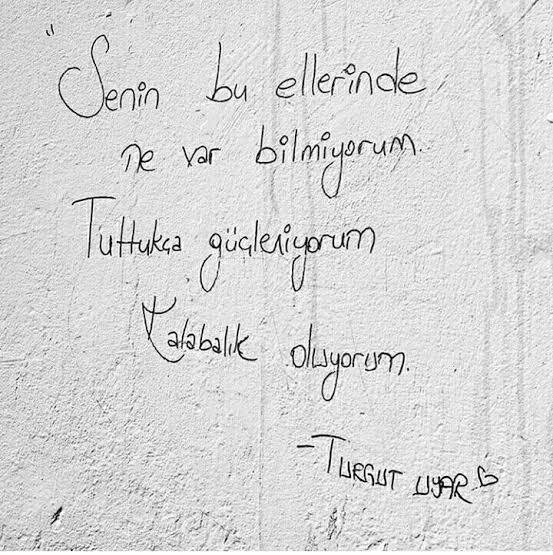 "Senin bu ellerinde
ne var bilmiyorum.
Tuttukça güçleniyorum
Kalabalık oluyorum.
-TURGUT UYAR ♡